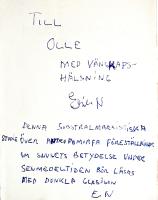 TILL
OLLE
MED VÄNSKAPS-
HÄLSNING
DENNA SUBSTRALMARXISTISKA
ÖVER ANTROPOMORFA FÖRESTÄLLNINGAR
OM SNUSETS BETYDELSE UNDER
SENMEDELTIDEN BÖR LÄSAS
MED DUNKLA GLASÖGON
E.N